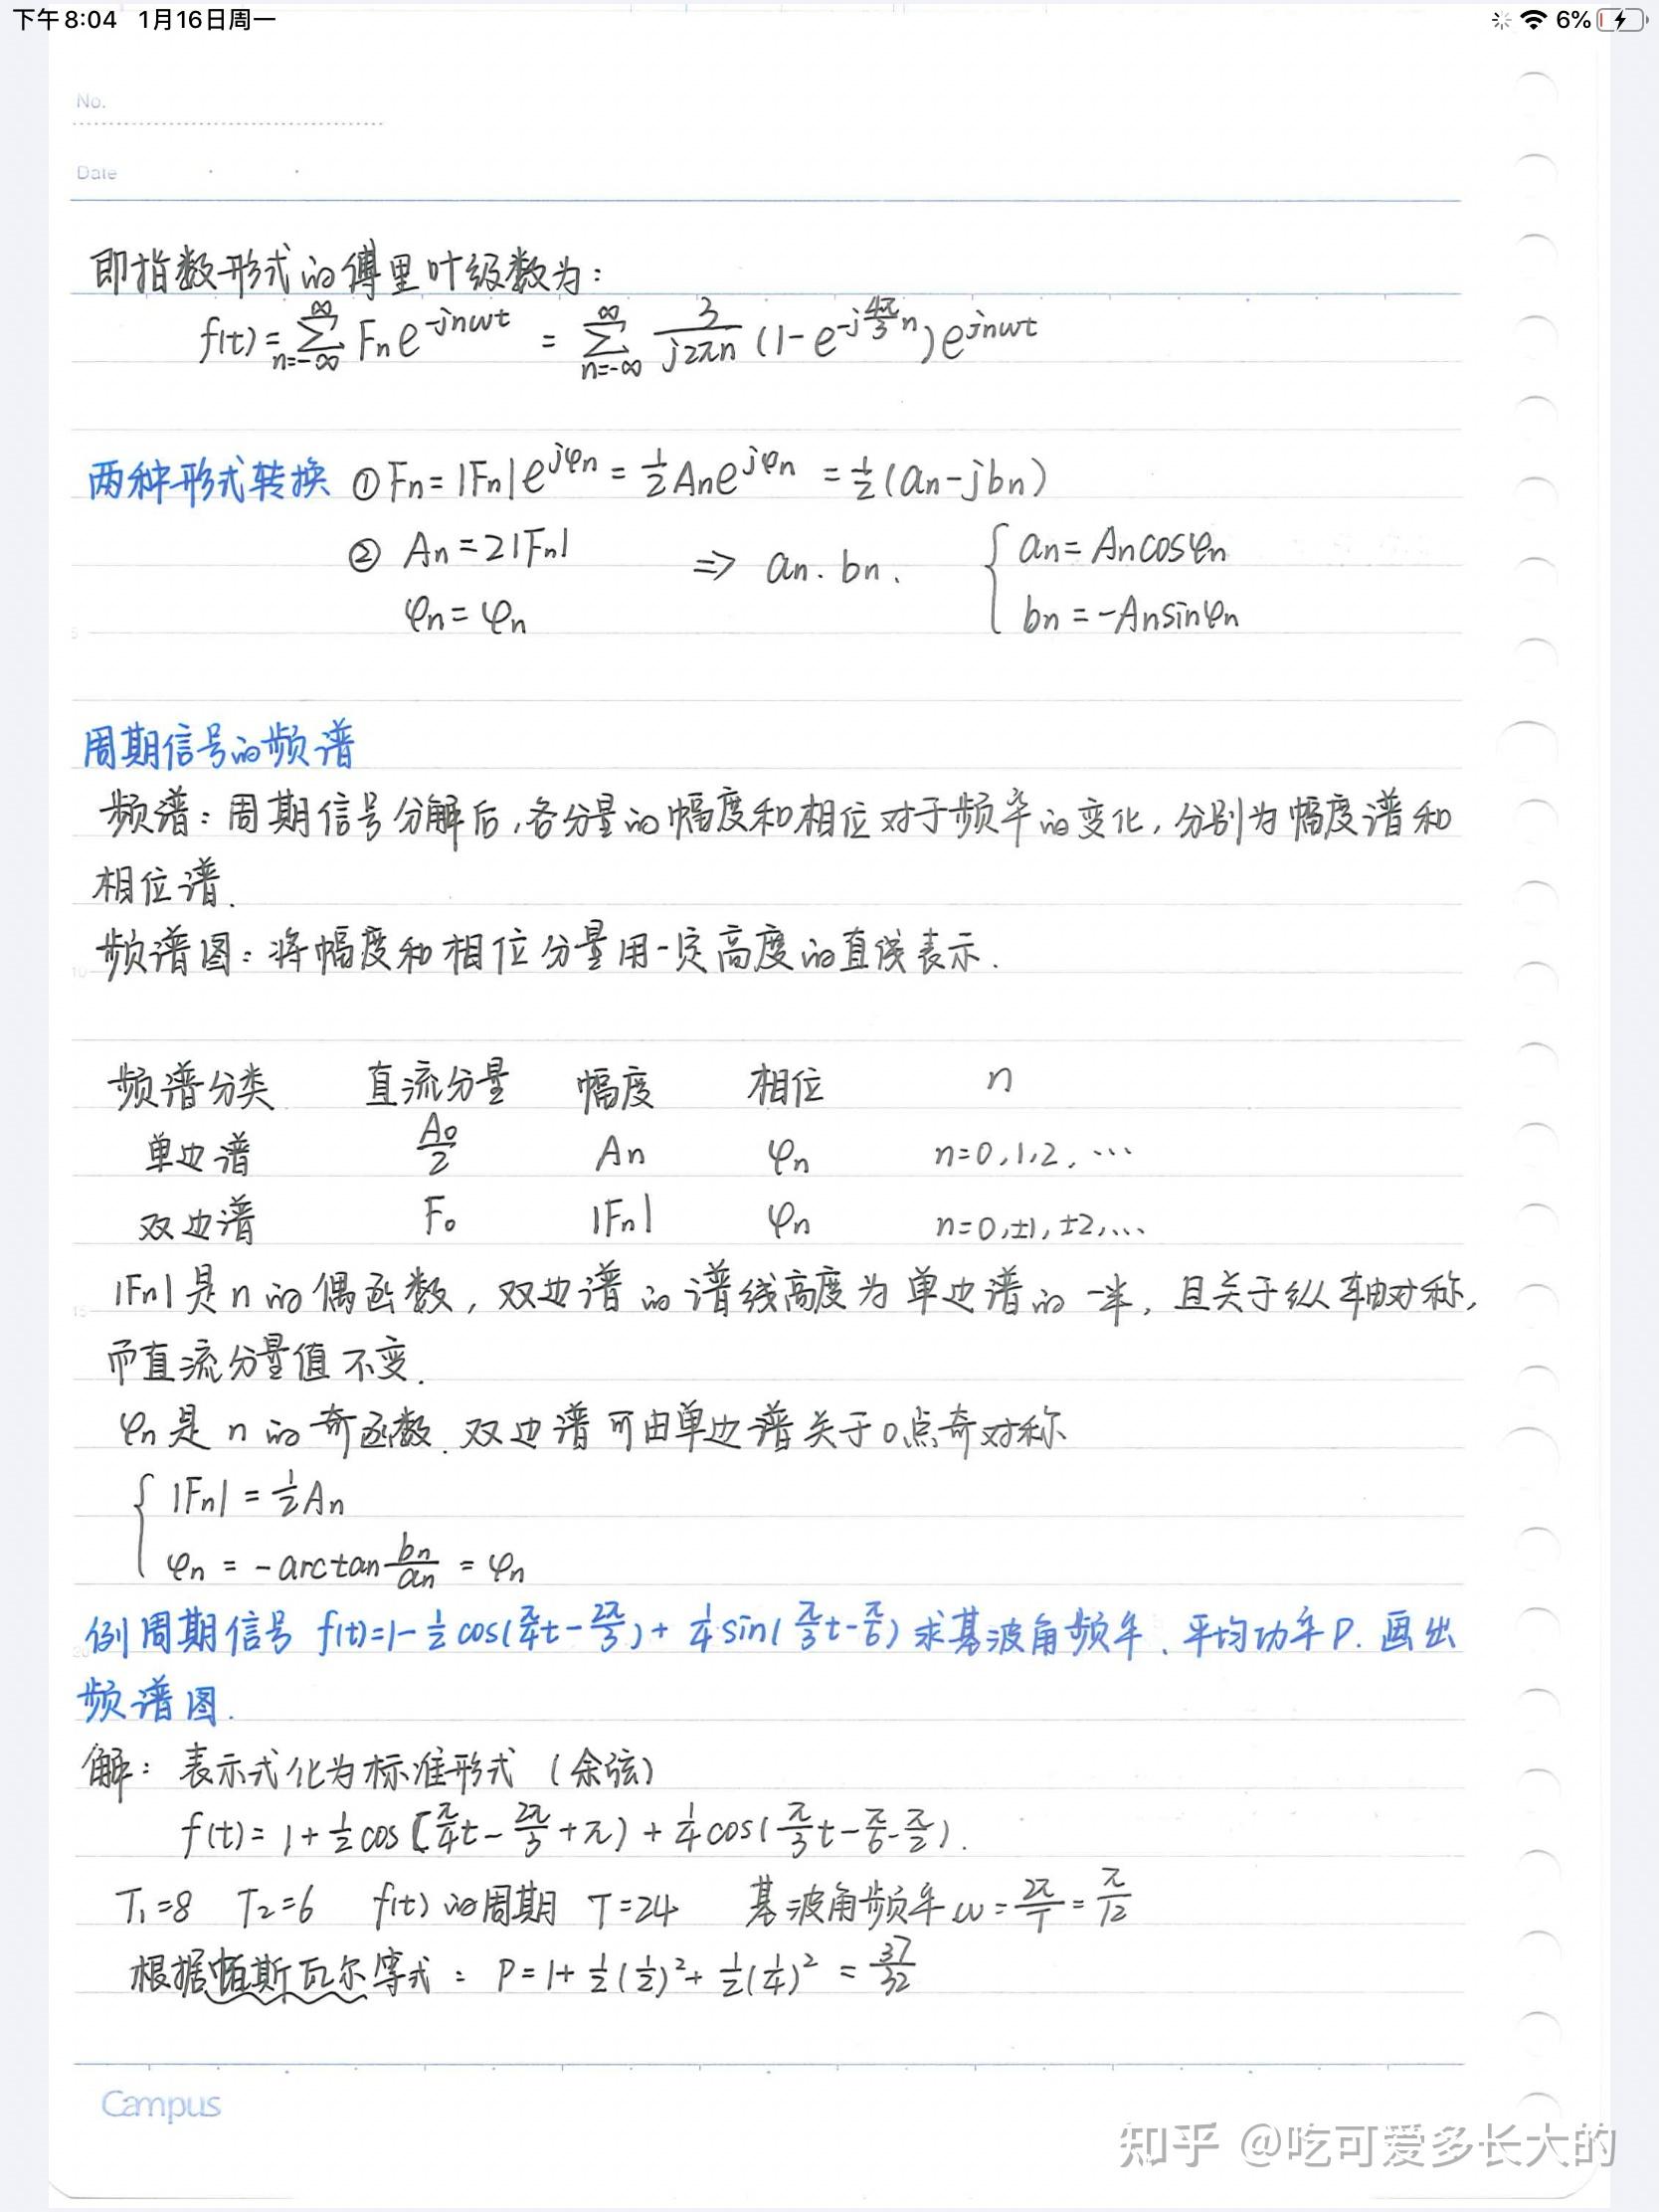 下午8:04 1月16日周一
6%
No.
Date
即指数形式的傅里叶级数为:
f(t)=∑_{n=-∞}^{∞} Fn e^{-jnωt} = ∑_{n=-∞}^{∞} 3/(j2πn) (1-e^{-j(4π/3)n}) e^{jnωt}
两种形式转换 ①Fn=|Fn|e^{jφn}=½Ane^{jφn}=½(an-jbn)
② An=2|Fn| ⇒ an. bn. { an=Ancosφn
φn=φn bn=-Ansinφn
5
周期信号的频谱
频谱:周期信号分解后,各分量的幅度和相位对于频率的变化,分别为幅度谱和
相位谱.
频谱图:将幅度和相位分量用一定高度的直线表示.
10
频谱分类 直流分量 幅度 相位 n
单边谱 A0/2 An φn n=0,1,2,…
双边谱 F0 |Fn| φn n=0,±1,±2,…
|Fn|是n的偶函数,双边谱的谱线高度为单边谱的一半,且关于纵轴对称,
15
而直流分量值不变.
φn是n的奇函数.双边谱可由单边谱关于0点奇对称
{ |Fn|=½An
φn=-arctan bn/an=φn
例周期信号 f(t)=1-½cos(π/4 t-2π/3)+¼sin(π/3 t-π/6)求基波角频率、平均功率P.画出
20
频谱图.
解:表示式化为标准形式(余弦)
f(t)=1+½cos[π/4 t-2π/3+π)+¼cos(π/3 t-π/6-π/2).
T₁=8 T₂=6 f(t)的周期 T=24 基波角频率ω=2π/T=π/12
根据帕斯瓦尔等式:P=1+½(½)²+½(¼)²=37/32
Campus
知乎 @吃可爱多长大的